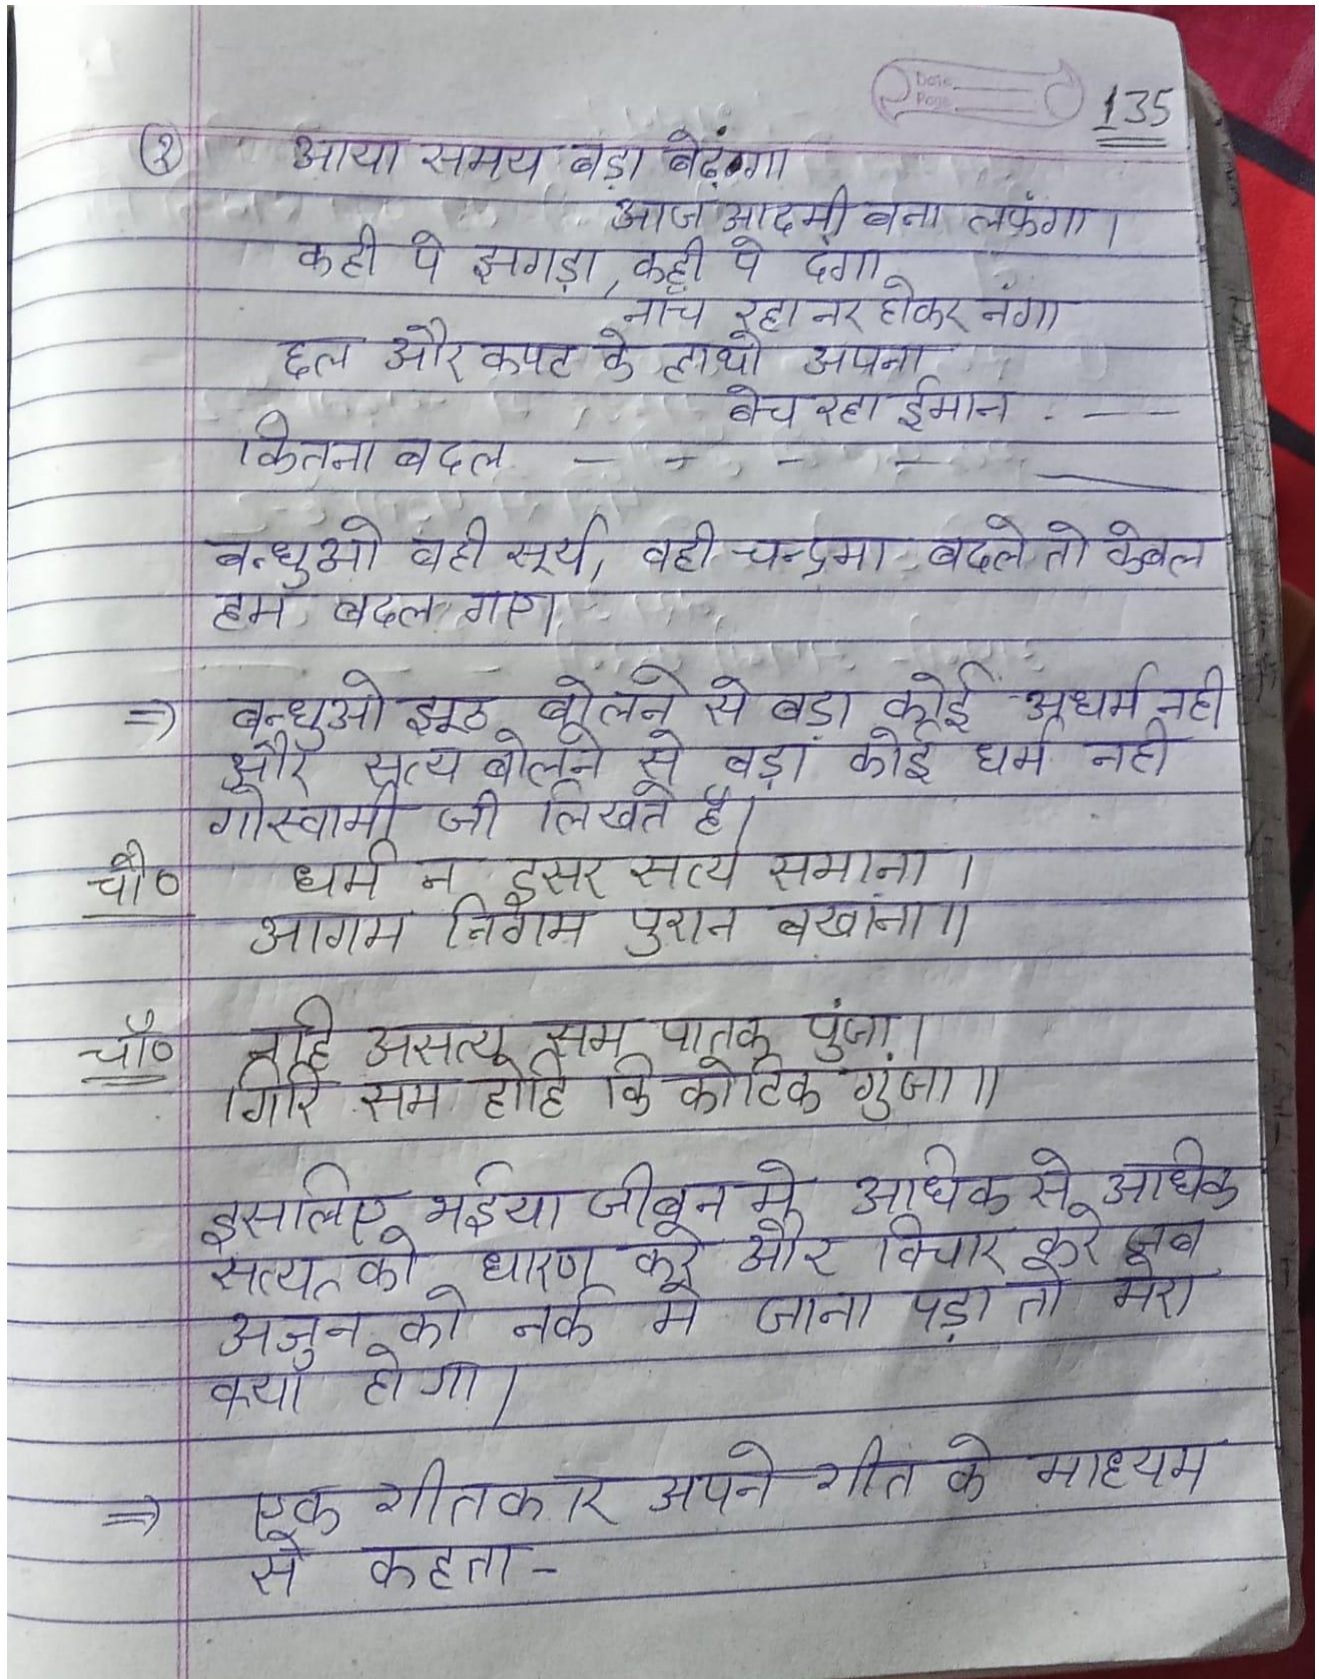 Date
Page
135
(१) आया समय बड़ा बेढ़ंगा
आज आदमी बना लफ़ंगा।
कही पे झगड़ा, कही पे दंगा
नाच रहा नर होकर नंगा
छल और कपट के हाथो अपना
बेच रहा ईमान . —
कितना बदल - - - -
बन्धुओ वही सूर्य, वही चन्द्रमा बदले तो केवल
हम बदल गए।
⇒ बन्धुओ झूठ बोलने से बड़ा कोई अधर्म नही
और सत्य बोलने से बड़ा कोई धर्म नही
गोस्वामी जी लिखते है।
चौ० धर्म न दूसर सत्य समाना।
आगम निगम पुरान बखाना॥
चौ० नहि असत्य सम पातक पुंजा।
गिरि सम होहि कि कोटिक गुंजा॥
इसलिए भईया जीवन मे अधिक से अधिक
सत्य को धारण करे और विचार करे जब
अर्जुन को नर्क मे जाना पड़ा तो मेरा
क्या होगा।
⇒ एक गीतकार अपने गीत के माध्यम
से कहता-